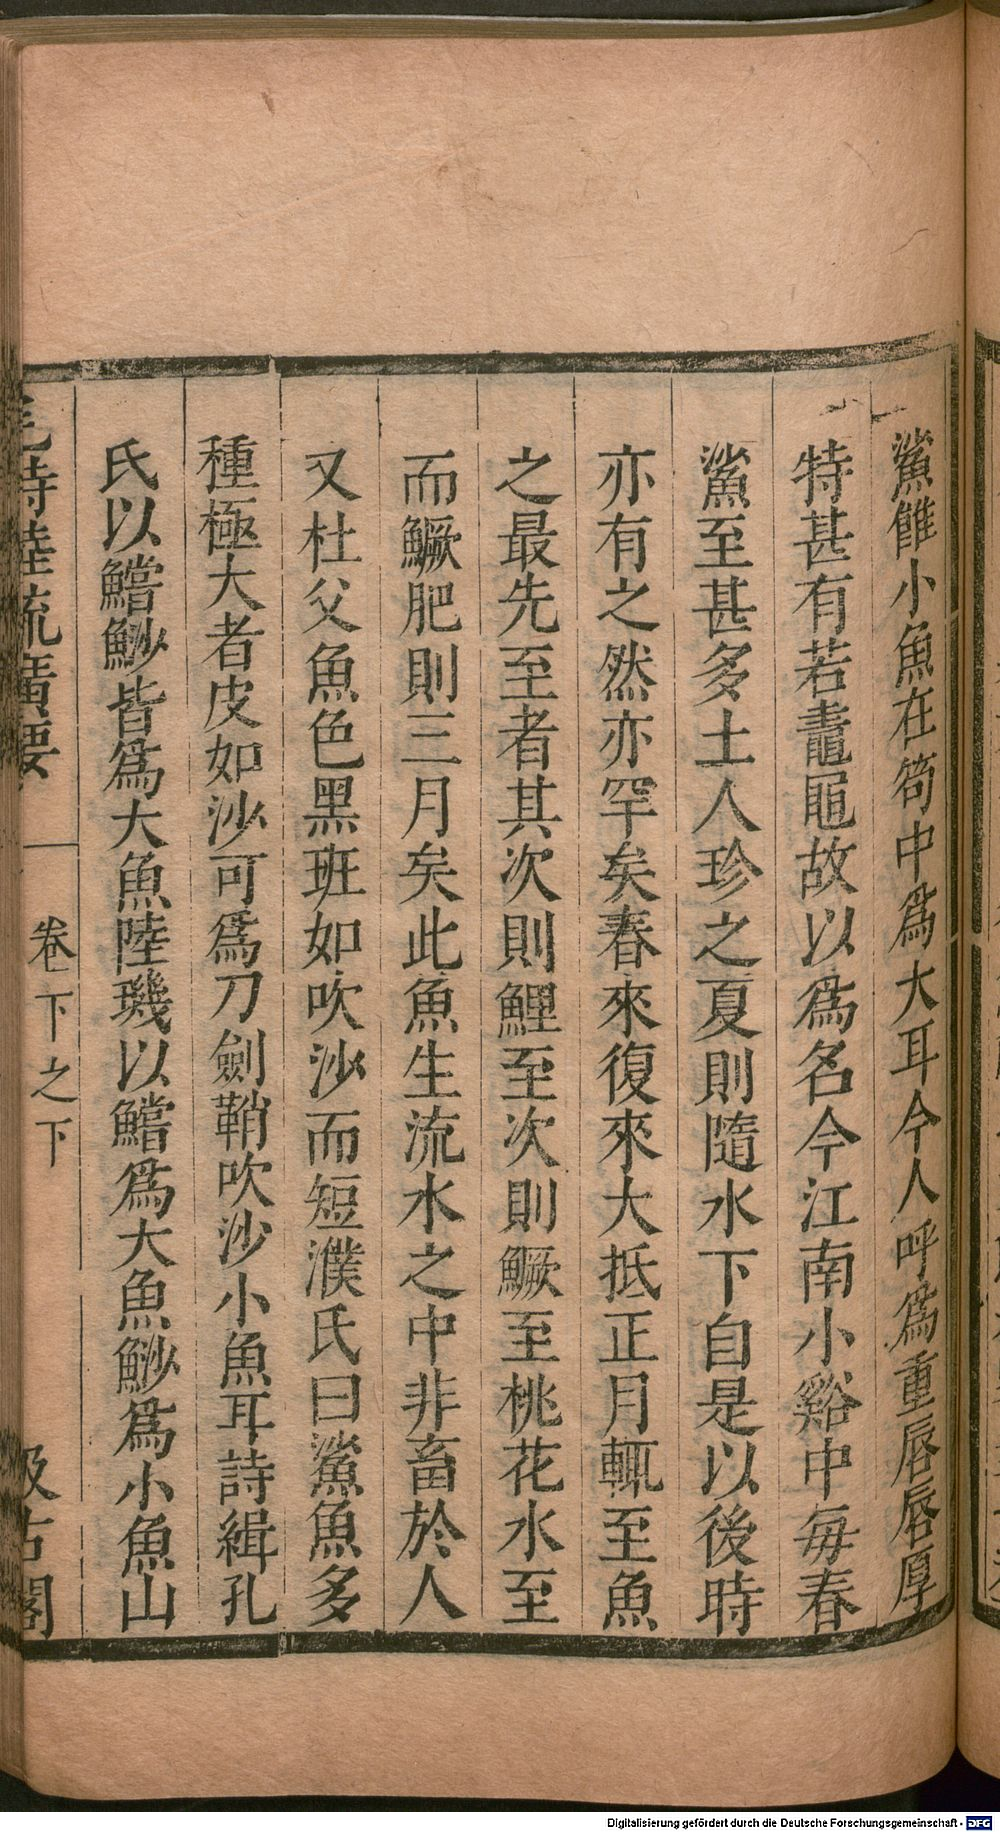 鯊雖小魚在笱中為大耳今人呼為重唇唇厚
特甚有若鼃黽故以為名今江南小谿中每春
鯊至甚多土人珍之夏則隨水下自是以後時
亦有之然亦罕矣春來復來大抵正月輒至魚
之最先至者其次則鯉至次則鱖至桃花水至
而鱖肥則三月矣此魚生流水之中非畜於人
又杜父魚色黑班如吹沙而短濮氏曰鯊魚多
種極大者皮如沙可為刀劍鞘吹沙小魚耳詩緝孔
氏以鱨魦皆為大魚陸璣以鱨為大魚魦為小魚山
毛詩陸疏廣要
卷下之下
汲古閣
Digitalisierung gefördert durch die Deutsche Forschungsgemeinschaft - DFG